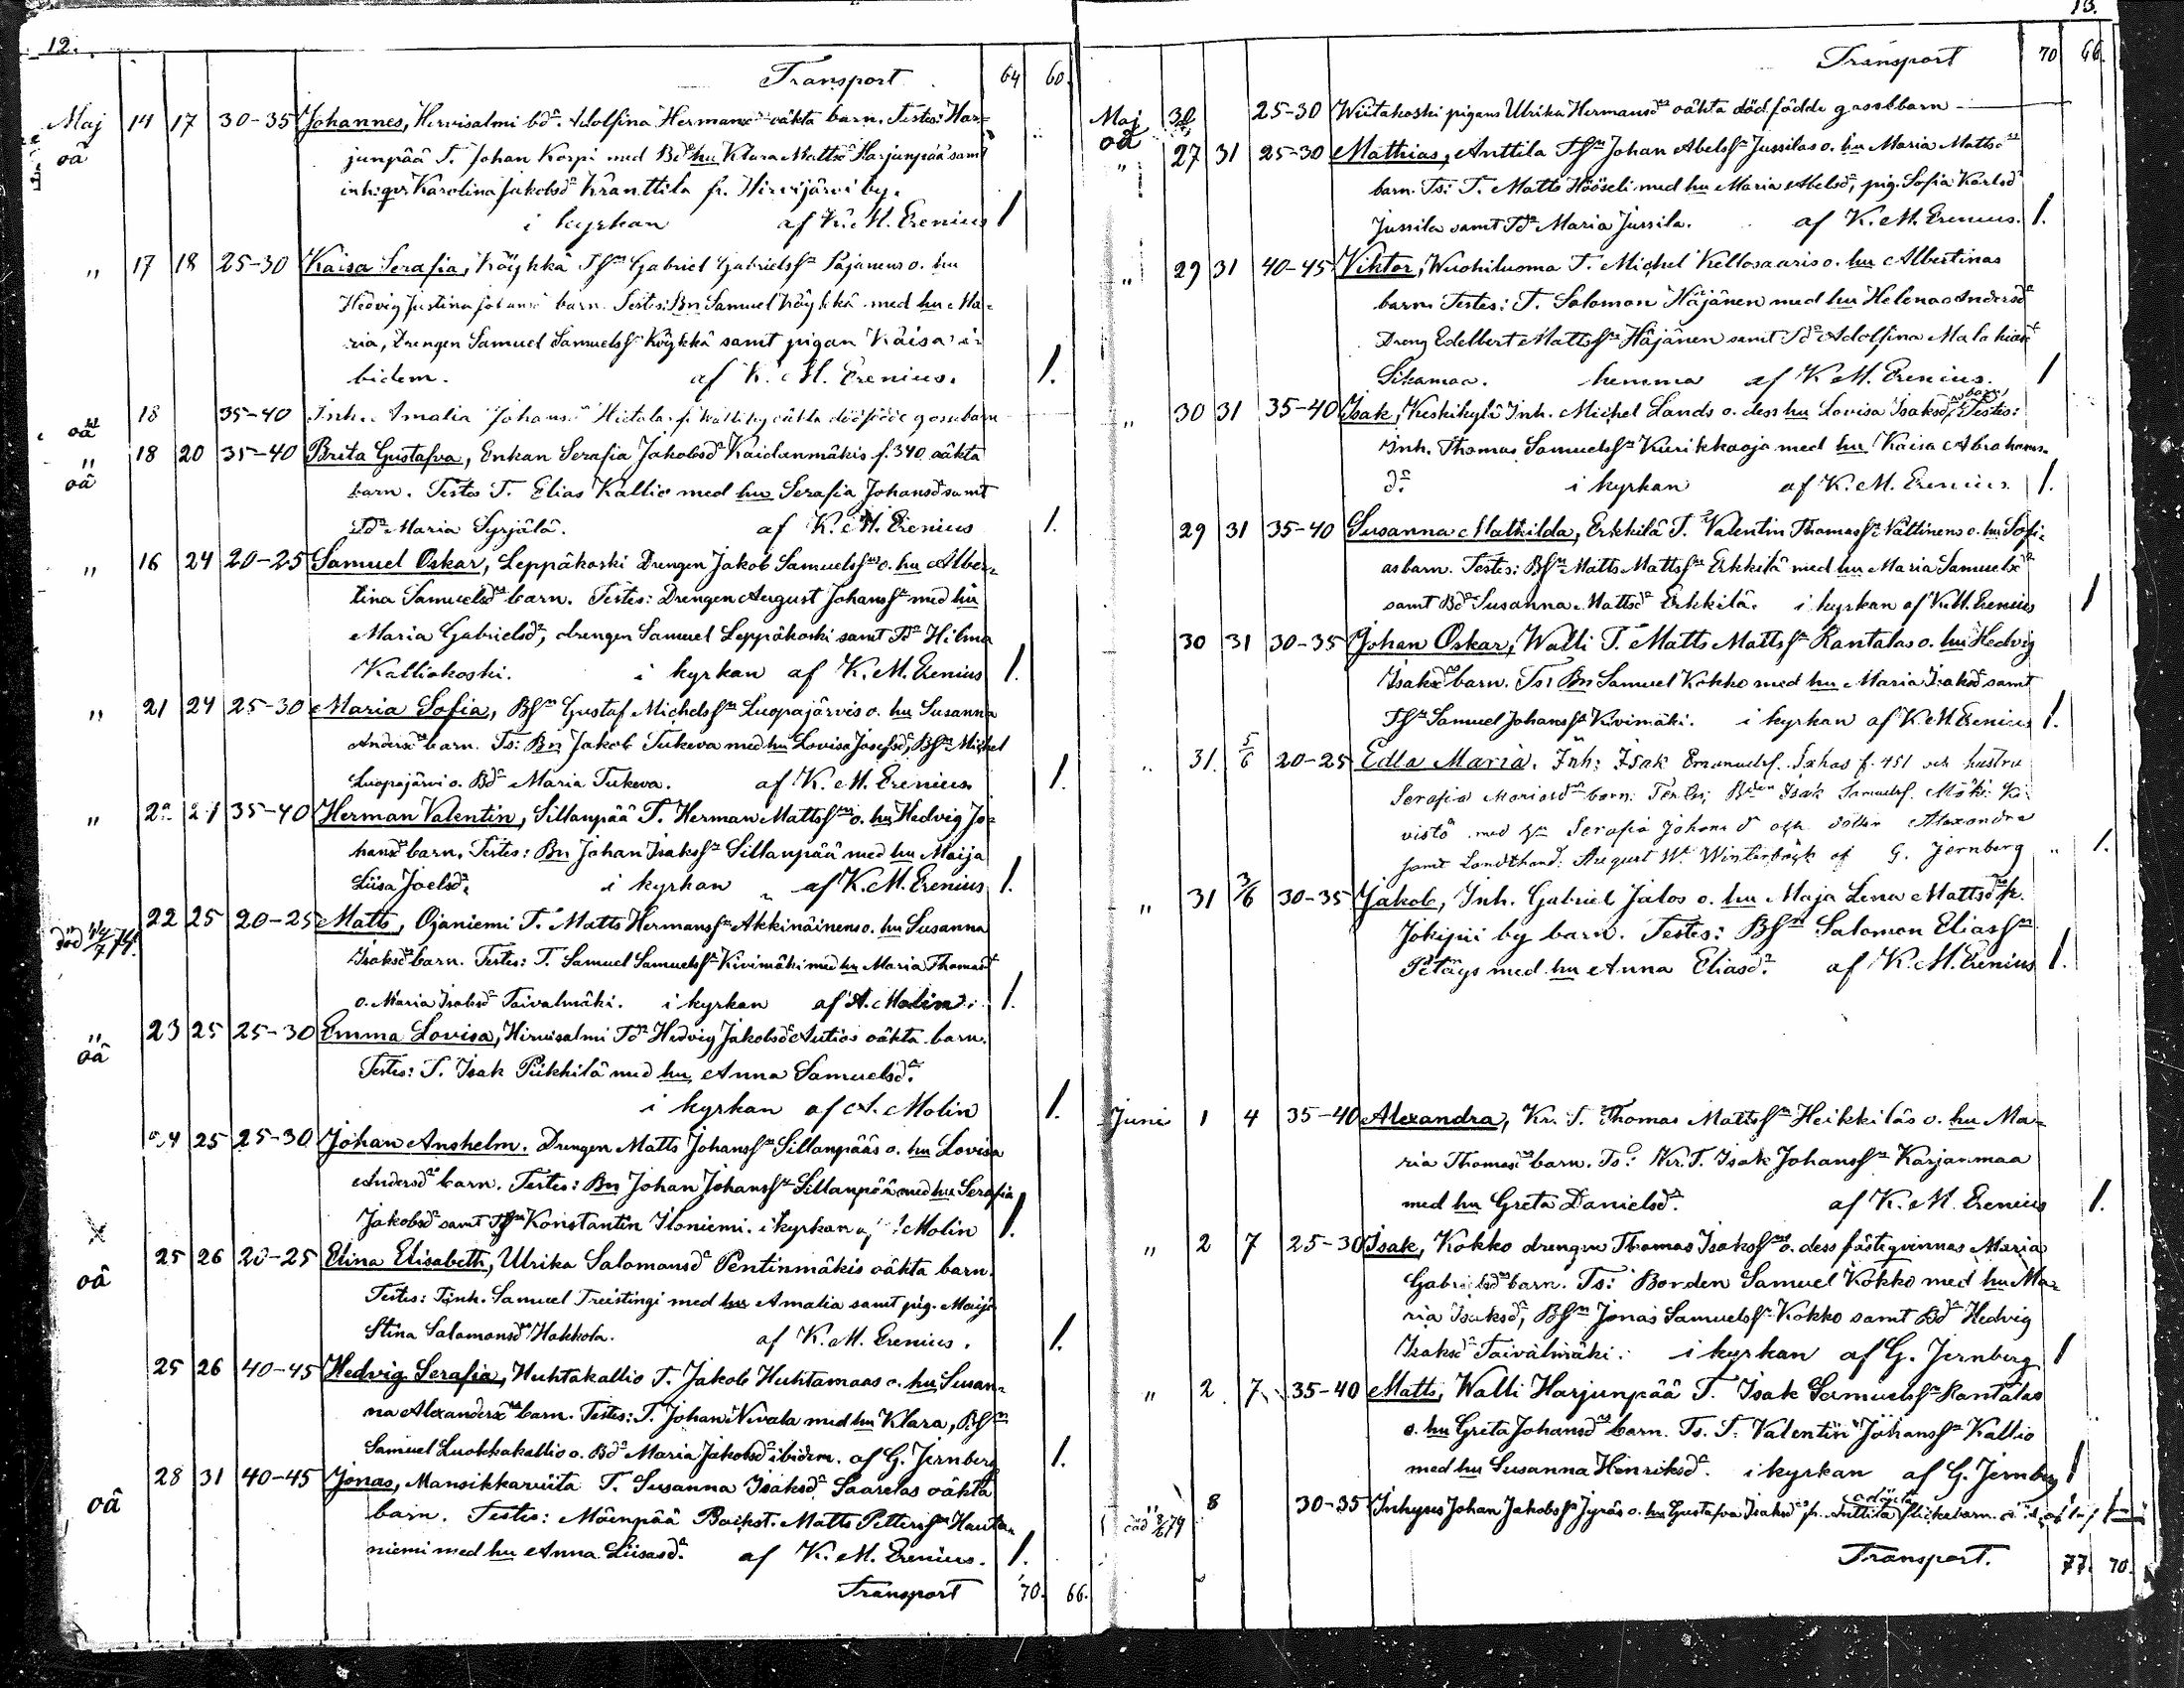 12.
Transport 64 60.
Maj 14 17 30-35 Johannes, Hirvisalmi bdr. Adolfina Hermans oäkta barn. Testes: Har=
oä junpää T. Johan Korpi med Bdr hu Klara Mattsdr Harjunpää samt
inh:gen Karolina Jakobsdr Kränttilä fr. Hirvijärvi by.
i kyrkan af K. M. Erenius 1
" 17 18 25-30 Kaisa Serafia, Köykkä TSn Gabriel Gabrielssn Pajanens o. hu
Hedvig Justina barn. Testes: Bn Samuel Köykkä med hu Ma=
ria, Drengen Samuel Samuelssn Köykkä samt pigan Kaisa i=
bidem. af K. M. Erenius. 1.
oä 18 35-40 Inh. Amalia Johansdr Hietala fr. Walli by oäkta dödfödde gossebarn
" 18 20 35-40 Brita Gustafva, Enkan Serafia Jakobsdr Kaidanmäkis f. 340 oäkta
oä barn. Testes T. Elias Kallio med hu Serafia Johansdr samt
Tdr Maria Syrjälä. af K. M. Erenius 1.
" 16 24 20-25 Samuel Oskar, Leppäkoski Drengen Jakob Samuelssns o. hu Alber=
tina Samuelsdrs barn. Testes: Drengen August Johanssn med hu
Maria Gabrielsdr, drengen Samuel Leppäkoski samt Tdr Hilma
Kalliokoski. i kyrkan af K. M. Erenius 1.
" 21 24 25-30 Maria Sofia, BSn Gustaf Michelssn Luopajärvis o. hu Susanna
Andersdrs barn. Ts: Bn Jakob Tukeva med hu Lovisa Josefsdr, BSn Michel
Luopajärvi o. Bdr Maria Tukeva. af K. M. Erenius. 1.
" 24 35-40 Herman Valentin, Sillanpää T. Herman Mattssns o. hu Hedvig Jo=
hansdrs barn. Testes: Bn Johan Isakssn Sillanpää med hu Maija
Liisa Joelsdr. i kyrkan af K. M. Erenius 1.
" 22 25 20-25 Matts, Ojaniemi T. Matts Hermanssn Akkinäinens o. hu Susanna
död 14/7 74. Isaksdrs barn. Testes: T. Samuel Samuelssn Kivimäki med hu Maria Thomasdr
o. Maria Isaksdr Taivalmäki. i kyrkan af A. Molin. 1.
" 23 25 25-30 Emma Lovisa, Hirvisalmi Tdr Hedvig Jakobsdr Autios oäkta barn.
oä Testes: T. Isak Piikkilä med hu Anna Samuelsdr.
i kyrkan af A. Molin 1.
24 25 25-30 Johan Anshelm. Drengen Matts Johanssn Sillanpääs o. hu Lovisa
Andersdrs barn. Testes: Bn Johan Johanssn Sillanpää med hu Serafia
Jakobsdr samt TSn Konstantin Iloniemi. i kyrkan af A. Molin 1.
oä 25 26 20-25 Elina Elisabeth, Ulrika Salomonsdr Pentinmäkis oäkta barn.
Testes: Tinh. Samuel Treistingi med hu Amalia samt pig. Maija
Stina Salomonsdr Hakkola. af K. M. Erenius. 1.
25 26 40-45 Hedvig Serafia, Huhtakallio T. Jakob Huhtamaas o. hu Susan=
na Alexandersdrs barn. Testes: T. Johan Nevala med hu Klara, BSn
Samuel Luokkakallio o. Bdr Maria Jakobsdr ibidem. af G. Jernberg 1.
oä 28 31 40-45 Jonas, Mansikkaviita T. Susanna Isaksdr Saarelas oäkta
barn. Testes: Mäenpää Backst. Matts Petterssn Hauta=
niemi med hu Anna Liisasdr. af K. M. Erenius. 1.
Transport 70. 66.
13.
Transport 70 66.
Maj 30 25-30 Wiitakoski pigans Ulrika Hermansdrs oäkta dödfödde gossebarn
oä
" 27 31 25-30 Mathias, Anttila TSn Johan Abelssn Jussilas o. hu Maria Mattsdrs
barn. Ts: T. Matts Hööseli med hu Maria Abelsdr, pig. Sofia Karlsdr
Jussila samt Tdr Maria Jussila. af K. M. Erenius. 1.
" 29 31 40-45 Viktor, Wuohiluoma T. Michel Kellosaaris o. hu Albertinas
barn. Testes: T. Salomon Häjänen med hu Helena Andersdr
Dreng Edelbert Mattssn Häjänen samt Tdr Adolfina Malakiasdr
Sikamaa. hemma af K. M. Erenius. 1
" 30 31 35-40 Isak, Keskikylä Inh. Michel Lands o. dess hu Lovisa Isaksdrs barn Testes:
Inh. Thomas Samuelssn Kurikkaoja med hu Kaisa Abrahams=
dr. i kyrkan af K. M. Erenius. 1.
29 31 35-40 Susanna Mathilda, Erkkilä T. Valentin Thomassn Nättinens o. hu Sofi=
as barn. Testes: BSn Matts Mattssn Erkkilä med hu Maria Samuelsdr
samt Bdr Susanna Mattsdr Erkkilä. i kyrkan af K. M. Erenius 1
30 31 30-35 Johan Oskar, Walli T. Matts Mattssn Rantalas o. hu Hedvig
Isaksdrs barn. Ts: Bn Samuel Kokko med hu Maria Isaksdr samt
TSn Samuel Johanssn Kivimäki. i kyrkan af K. M. Erenius 1.
" 31. 5/6 20-25 Edla Maria. Inh: Isak Emanuelss. Sahas f. 451 och hustru
Serafia Mariasdrs barn. Testes; Bden Isak Samuelss. Mäki-Ki=
vistö med hn Serafia Johansd och dottern Alexandra
samt Landthand: August W. Winterbäck af G. Jernberg " 1.
" 31 3/6 30-35 Jakob, Inh. Gabriel Jalos o. hu Maja Lena Mattsdrs fr.
Jokipii by barn. Testes: BSn Salomon Eliassn
Petäys med hu Anna Eliasdr. af K. M. Erenius 1.
Juni 1 4 35-40 Alexandra, Kr. T. Thomas Mattssn Heikkiläs o. hu Ma=
ria Thomasdrs barn. Ts: Kr. T. Isak Johanssn Karjanmaa
med hu Greta Danielsdr. af K. M. Erenius 1.
" 2 7 25-30 Isak, Kokko drengen Thomas Isakssns o. dess fästeqvinnas Maria
Gabrielsdrs barn. Ts: Bonden Samuel Kokko med hu Ma=
ria Isaksdr, BSn Jonas Samuelssn Kokko samt Bdr Hedvig
Isaksdr Taivalmäki. i kyrkan af G. Jernberg 1
" 2 7 35-40 Matts, Walli Harjunpää T. Isak Samuelssn Rantalas
o. hu Greta Johansdrs barn. Ts. T. Valentin Johanssn Kallio
med hu Susanna Henriksdr. i kyrkan af G. Jernberg 1
" 8 30-35 Inhyses Johan Jakobssn Jyräs o. hu Gustafva Isaksdrs fr. Anttila odöpta flickebarn.
död 8/6 74
Transport. 77. 70.